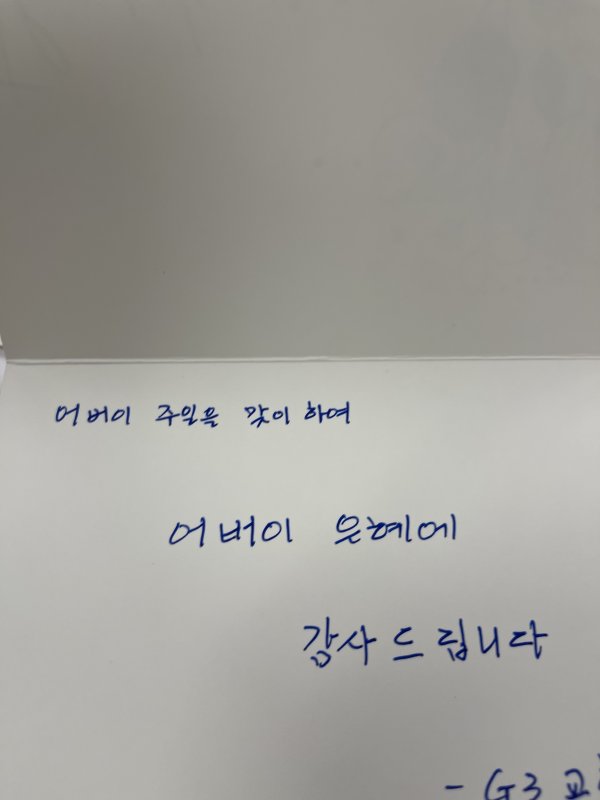 어버이 주일을 맞이하여
어버이 은혜에
감사드립니다
- G3